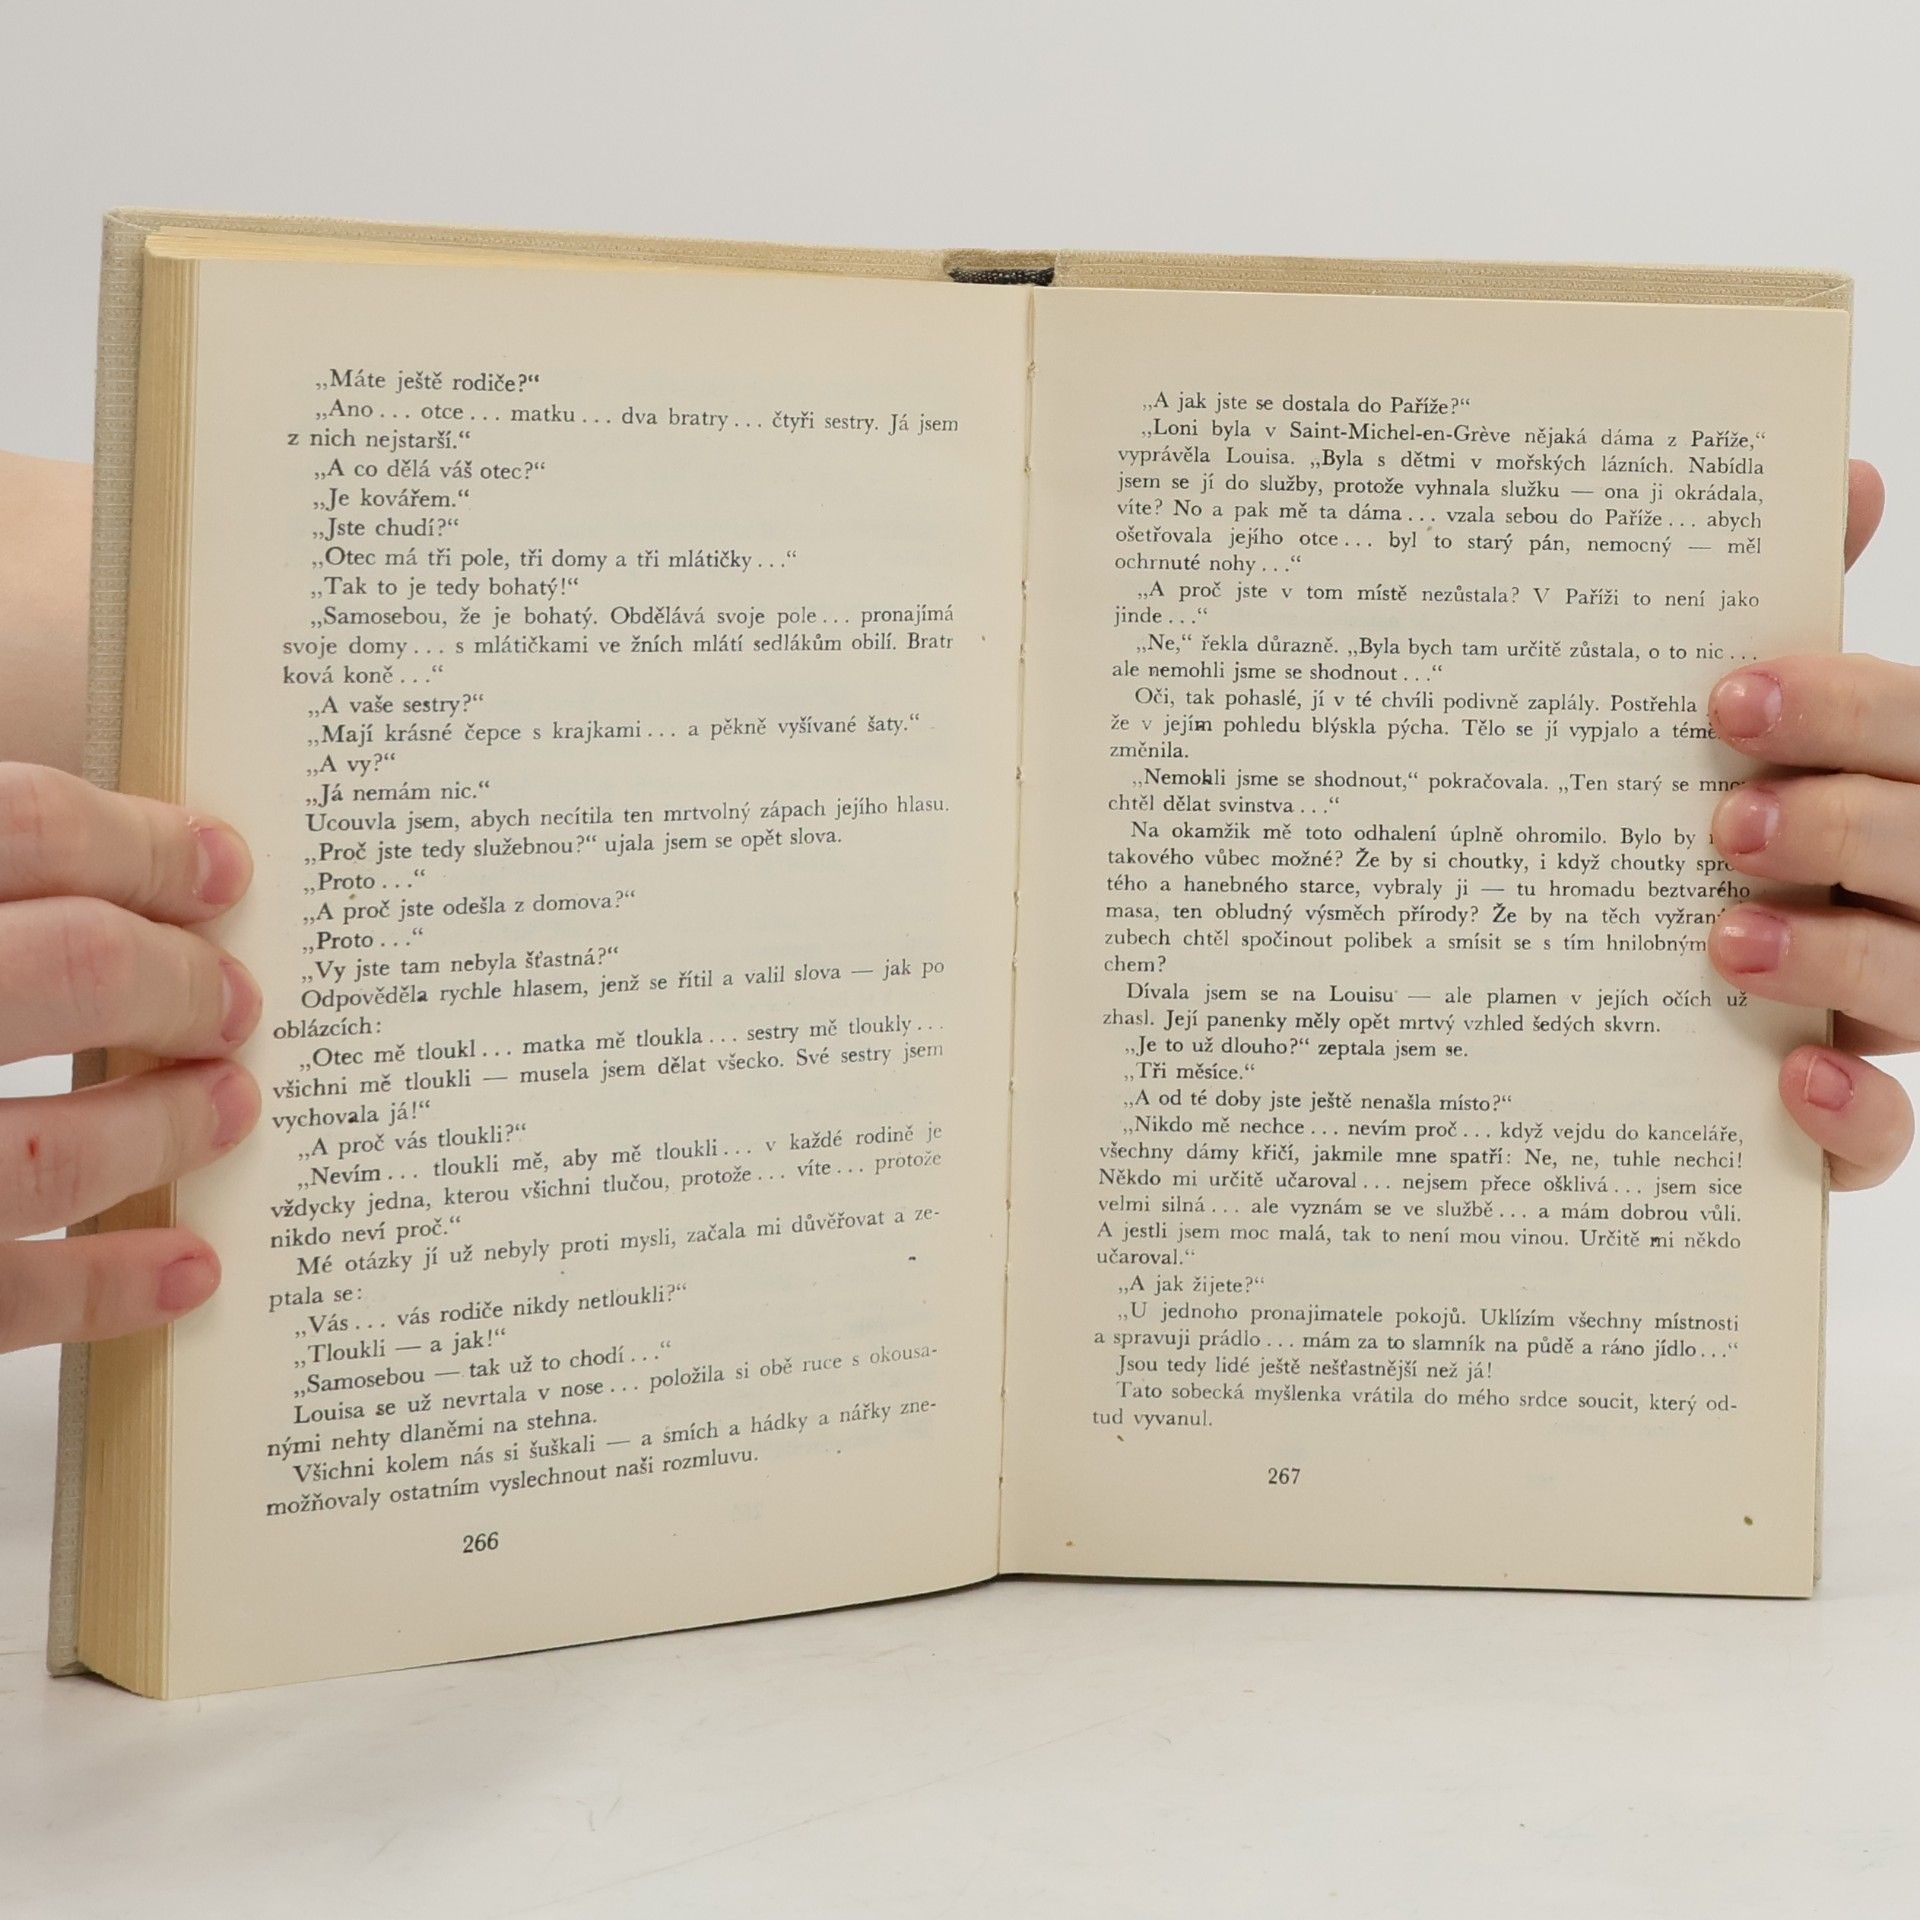 „Máte ještě rodiče?“
„Ano... otce... matku... dva bratry... čtyři sestry. Já jsem
z nich nejstarší.“
„A co dělá váš otec?“
„Je kovářem.“
„Jste chudí?“
„Otec má tři pole, tři domy a tři mlátičky...“
„Tak to je tedy bohatý!“
„Samosebou, že je bohatý. Obdělává svoje pole... pronajímá
svoje domy... s mlátičkami ve žních mlátí sedlákům obilí. Bratr
ková koně...“
„A vaše sestry?“
„Mají krásné čepce s krajkami... a pěkně vyšívané šaty.“
„A vy?“
„Já nemám nic.“
Ucouvla jsem, abych necítila ten mrtvolný zápach jejího hlasu.
„Proč jste tedy služebnou?“ ujala jsem se opět slova.
„Proto...“
„A proč jste odešla z domova?“
„Proto...“
„Vy jste tam nebyla šťastná?“
Odpověděla rychle hlasem, jenž se řítil a valil slova — jak po
oblázcích:
„Otec mě tloukl... matka mě tloukla... sestry mě tloukly...
všichni mě tloukli — musela jsem dělat všecko. Své sestry jsem
vychovala já!“
„A proč vás tloukli?“
„Nevím... tloukli mě, aby mě tloukli... v každé rodině je
vždycky jedna, kterou všichni tlučou, protože... víte... protože
nikdo neví proč.“
Mé otázky jí už nebyly proti mysli, začala mi důvěřovat a ze-
ptala se:
„Vás... vás rodiče nikdy netloukli?“
„Tloukli — a jak!“
„Samosebou — tak už to chodí...“
Louisa se už nevrtala v nose... položila si obě ruce s okousa-
nými nehty dlaněmi na stehna.
Všichni kolem nás si šuškali — a smích a hádky a nářky zne-
možňovaly ostatním vyslechnout naši rozmluvu.
266
„A jak jste se dostala do Paříže?“
„Loni byla v Saint-Michel-en-Grève nějaká dáma z Paříže,“
vyprávěla Louisa. „Byla s dětmi v mořských lázních. Nabídla
jsem se jí do služby, protože vyhnala služku — ona ji okrádala,
víte? No a pak mě ta dáma... vzala sebou do Paříže... abych
ošetřovala jejího otce... byl to starý pán, nemocný — měl
ochrnuté nohy...“
„A proč jste v tom místě nezůstala? V Paříži to není jako
jinde...“
„Ne,“ řekla důrazně. „Byla bych tam určitě zůstala, o to nic...
ale nemohli jsme se shodnout...“
Oči, tak pohaslé, jí v té chvíli podivně zaplály. Postřehla
že v jejím pohledu blýskla pýcha. Tělo se jí vypjalo a
změnila.
„Nemohli jsme se shodnout,“ pokračovala. „Ten starý se
chtěl dělat svinstva...“
Na okamžik mě toto odhalení úplně ohromilo. Bylo by
takového vůbec možné? Že by si choutky, i když choutky
tého a hanebného starce, vybraly ji — tu hromadu beztvarého
masa, ten obludný výsměch přírody? Že by na těch
zubech chtěl spočinout polibek a smísit se s tím
chem?
Dívala jsem se na Louisu — ale plamen v jejích očích už
zhasl. Její panenky měly opět mrtvý vzhled šedých skvrn.
„Je to už dlouho?“ zeptala jsem se.
„Tři měsíce.“
„A od té doby jste ještě nenašla místo?“
„Nikdo mě nechce... nevím proč... když vejdu do kanceláře,
všechny dámy křičí, jakmile mne spatří: Ne, ne, tuhle nechci!
Někdo mi určitě učaroval... nejsem přece ošklivá... jsem sice
velmi silná... ale vyznám se ve službě... a mám dobrou vůli.
A jestli jsem moc malá, tak to není mou vinou. Určitě mi někdo
učaroval.“
„A jak žijete?“
„U jednoho pronajimatele pokojů. Uklízím všechny místnosti
a spravuji prádlo... mám za to slamník na půdě a ráno jídlo...“
Jsou tedy lidé ještě nešťastnější než já!
Tato sobecká myšlenka vrátila do mého srdce soucit, který od-
tud vyvanul.
267